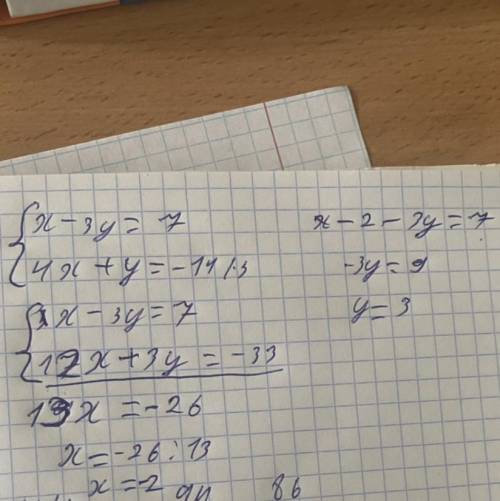 x - 3y = 7
4x + y = -11 /·3
x - 3y = 7
12x + 3y = -33
13x = -26
x = -26 : 13
x = -2
x - 2 - 3y = 7
-3y = 9
y = 3
86